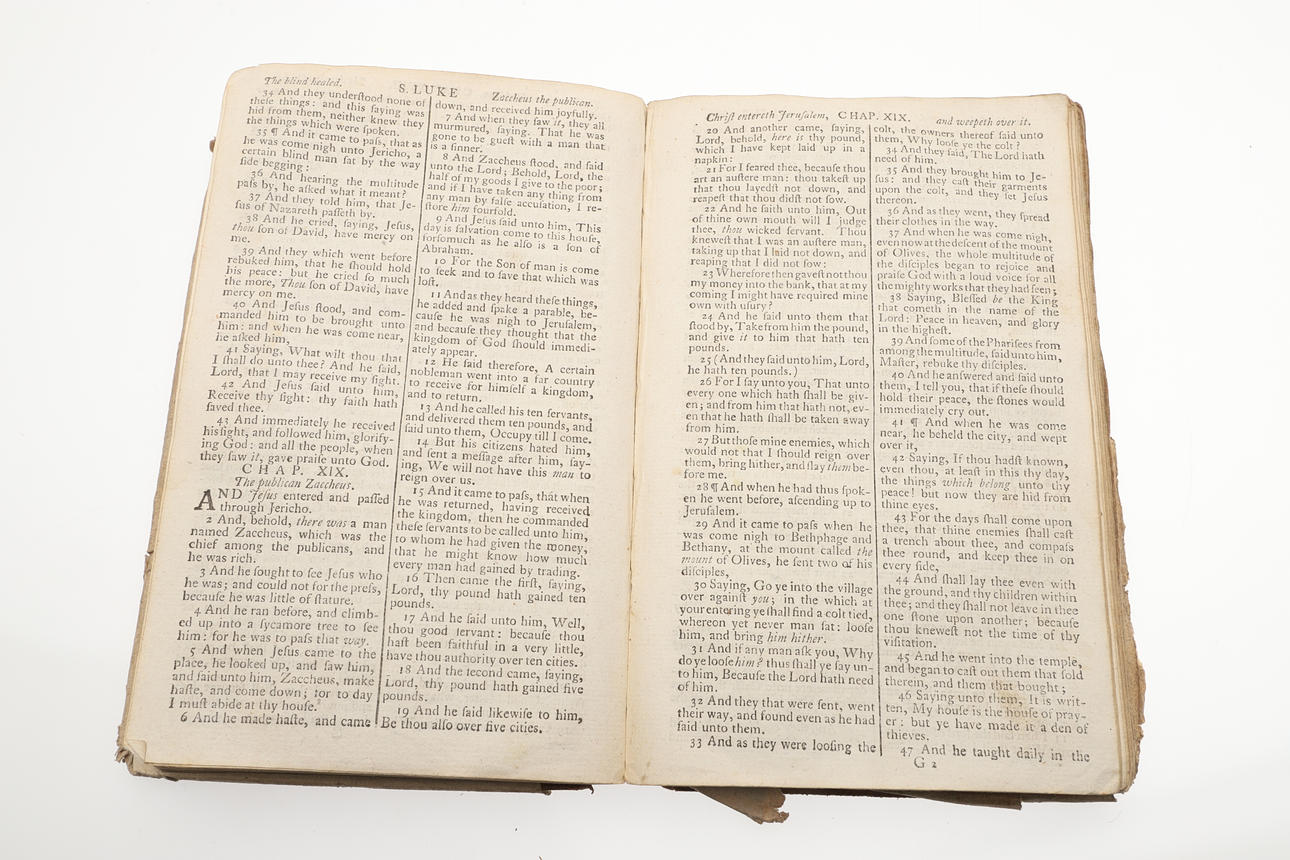 The blind healed.
S. LUKE
Zaccheus the publican.
34 And they underſtood none of
theſe things: and this ſaying was
hid from them, neither knew they
the things which were ſpoken.
35 ¶ And it came to paſs, that as
he was come nigh unto Jericho, a
certain blind man ſat by the way
ſide begging:
36 And hearing the multitude
paſs by, he aſked what it meant?
37 And they told him, that Je-
ſus of Nazareth paſſeth by.
38 And he cried, ſaying, Jeſus,
thou ſon of David, have mercy on
me.
39 And they which went before
rebuked him, that he ſhould hold
his peace: but he cried ſo much
the more, Thou ſon of David, have
mercy on me.
40 And Jeſus ſtood, and com-
manded him to be brought unto
him: and when he was come near,
he aſked him,
41 Saying, What wilt thou that
I ſhall do unto thee? And he ſaid,
Lord, that I may receive my ſight.
42 And Jeſus ſaid unto him,
Receive thy ſight: thy faith hath
ſaved thee.
43 And immediately he received
his ſight, and followed him, glorify-
ing God: and all the people, when
they ſaw it, gave praiſe unto God.
CHAP. XIX.
The publican Zaccheus.
AND Jeſus entered and paſſed
through Jericho.
2 And, behold, there was a man
named Zaccheus, which was the
chief among the publicans, and
he was rich.
3 And he ſought to ſee Jeſus who
he was; and could not for the preſs,
becauſe he was little of ſtature.
4 And he ran before, and climb-
ed up into a ſycamore tree to ſee
him: for he was to paſs that way.
5 And when Jeſus came to the
place, he looked up, and ſaw him,
and ſaid unto him, Zaccheus, make
haſte, and come down; for to day
I muſt abide at thy houſe.
6 And he made haſte, and came
down, and received him joyfully.
7 And when they ſaw it, they all
murmured, ſaying. That he was
gone to be gueſt with a man that
is a ſinner.
8 And Zaccheus ſtood, and ſaid
unto the Lord; Behold, Lord, the
half of my goods I give to the poor;
and if I have taken any thing from
any man by falſe accuſation, I re-
ſtore him fourfold.
9 And Jeſus ſaid unto him, This
day is ſalvation come to this houſe,
forſomuch as he alſo is a ſon of
Abraham.
10 For the Son of man is come
to ſeek and to ſave that which was
loſt.
11 And as they heard theſe things,
he added and ſpake a parable, be-
cauſe he was nigh to Jeruſalem,
and becauſe they thought that the
kingdom of God ſhould immedi-
ately appear.
12 He ſaid therefore, A certain
nobleman went into a far country
to receive for himſelf a kingdom,
and to return.
13 And he called his ten ſervants,
and delivered them ten pounds, and
ſaid unto them, Occupy till I come.
14 But his citizens hated him,
and ſent a meſſage after him, ſay-
ing, We will not have this man to
reign over us.
15 And it came to paſs, that when
he was returned, having received
the kingdom, then he commanded
theſe ſervants to be called unto him,
to whom he had given the money,
that he might know how much
every man had gained by trading.
16 Then came the firſt, ſaying,
Lord, thy pound hath gained ten
pounds.
17 And he ſaid unto him, Well,
thou good ſervant: becauſe thou
haſt been faithful in a very little,
have thou authority over ten cities.
18 And the ſecond came, ſaying,
Lord, thy pound hath gained five
pounds.
19 And he ſaid likewiſe to him,
Be thou alſo over five cities.
Chriſt entereth Jeruſalem,
CHAP. XIX.
and weepeth over it.
20 And another came, ſaying,
Lord, behold, here is thy pound,
which I have kept laid up in a
napkin:
21 For I feared thee, becauſe thou
art an auſtere man: thou takeſt up
that thou layedſt not down, and
reapeſt that thou didſt not ſow.
22 And he ſaith unto him, Out
of thine own mouth will I judge
thee, thou wicked ſervant. Thou
kneweſt that I was an auſtere man,
taking up that I laid not down, and
reaping that I did not ſow:
23 Wherefore then gaveſt not thou
my money into the bank, that at my
coming I might have required mine
own with uſury?
24 And he ſaid unto them that
ſtood by, Take from him the pound,
and give it to him that hath ten
pounds.
25 (And they ſaid unto him, Lord,
he hath ten pounds.)
26 For I ſay unto you, That unto
every one which hath ſhall be giv-
en; and from him that hath not, ev-
en that he hath ſhall be taken away
from him.
27 But thoſe mine enemies, which
would not that I ſhould reign over
them, bring hither, and ſlay them be-
fore me.
28 ¶ And when he had thus ſpok-
en he went before, aſcending up to
Jeruſalem.
29 And it came to paſs when he
was come nigh to Bethphage and
Bethany, at the mount called the
mount of Olives, he ſent two of his
diſciples,
30 Saying, Go ye into the village
over againſt you; in the which at
your entering ye ſhall find a colt tied,
whereon yet never man ſat: looſe
him, and bring him hither.
31 And if any man aſk you, Why
do ye looſe him? thus ſhall ye ſay un-
to him, Becauſe the Lord hath need
of him.
32 And they that were ſent, went
their way, and found even as he had
ſaid unto them.
33 And as they were looſing the
colt, the owners thereof ſaid unto
them, Why looſe ye the colt?
34 And they ſaid, The Lord hath
need of him.
35 And they brought him to Je-
ſus: and they caſt their garments
upon the colt, and they ſet Jeſus
thereon.
36 And as they went, they ſpread
their clothes in the way.
37 And when he was come nigh,
even now at the deſcent of the mount
of Olives, the whole multitude of
the diſciples began to rejoice and
praiſe God with a loud voice for all
the mighty works that they had ſeen;
38 Saying, Bleſſed be the King
that cometh in the name of the
Lord: Peace in heaven, and glory
in the higheſt.
39 And ſome of the Phariſees from
among the multitude, ſaid unto him,
Maſter, rebuke thy diſciples.
40 And he anſwered and ſaid unto
them, I tell you, that if theſe ſhould
hold their peace, the ſtones would
immediately cry out.
41 ¶ And when he was come
near, he beheld the city, and wept
over it,
42 Saying, If thou hadſt known,
even thou, at leaſt in this thy day,
the things which belong unto thy
peace! but now they are hid from
thine eyes.
43 For the days ſhall come upon
thee, that thine enemies ſhall caſt
a trench about thee, and compaſs
thee round, and keep thee in on
every ſide,
44 And ſhall lay thee even with
the ground, and thy children within
thee; and they ſhall not leave in thee
one ſtone upon another; becauſe
thou kneweſt not the time of thy
viſitation.
45 And he went into the temple,
and began to caſt out them that ſold
therein, and them that bought;
46 Saying unto them, It is writ-
ten, My houſe is the houſe of pray-
er: but ye have made it a den of
thieves.
47 And he taught daily in the
G 2